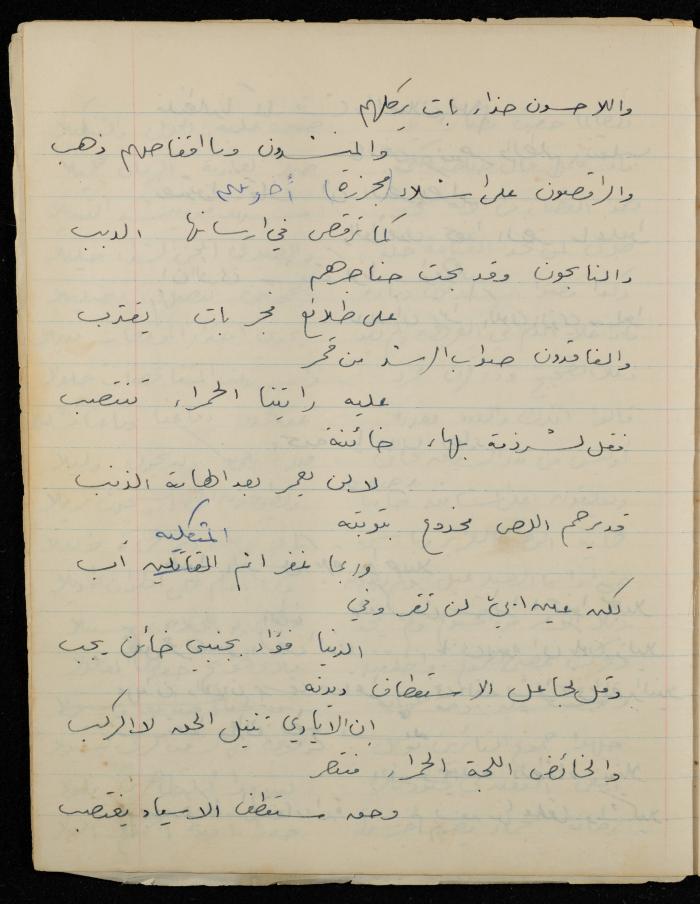 واللاحسون حذاء بات يركلهم
والمنشدون وما اقفاصهم ذهب
والراقصون على اشلاء (مجزرة) أخوتهم
كما ترقص في ارسانها الدبب
والنابحون وقد بحت حناجرهم
على طلائع فجر بات يقترب
والفاقدون صواب الرشد من قمر
عليه رايتنا الحمراء تنتصب
فقل لشرذمة بلهاء خائنة
لا لن يعمر بعد الهامة الذنب
قد يرحم اللص مخدوع بتوبته
المتكليه
وربما غفر اثم القاتلين اب
لكن عين ابيّ لن تقر وفي
الدنيا فؤاد بجنبي خائن يجب
وقل لجاعل الاستعطاف ديدنه
ان الايادي تنيل الحق لا الركب
والخائض اللجة الحمراء منتصر
وحق مستعطف الاسياد يغتصب